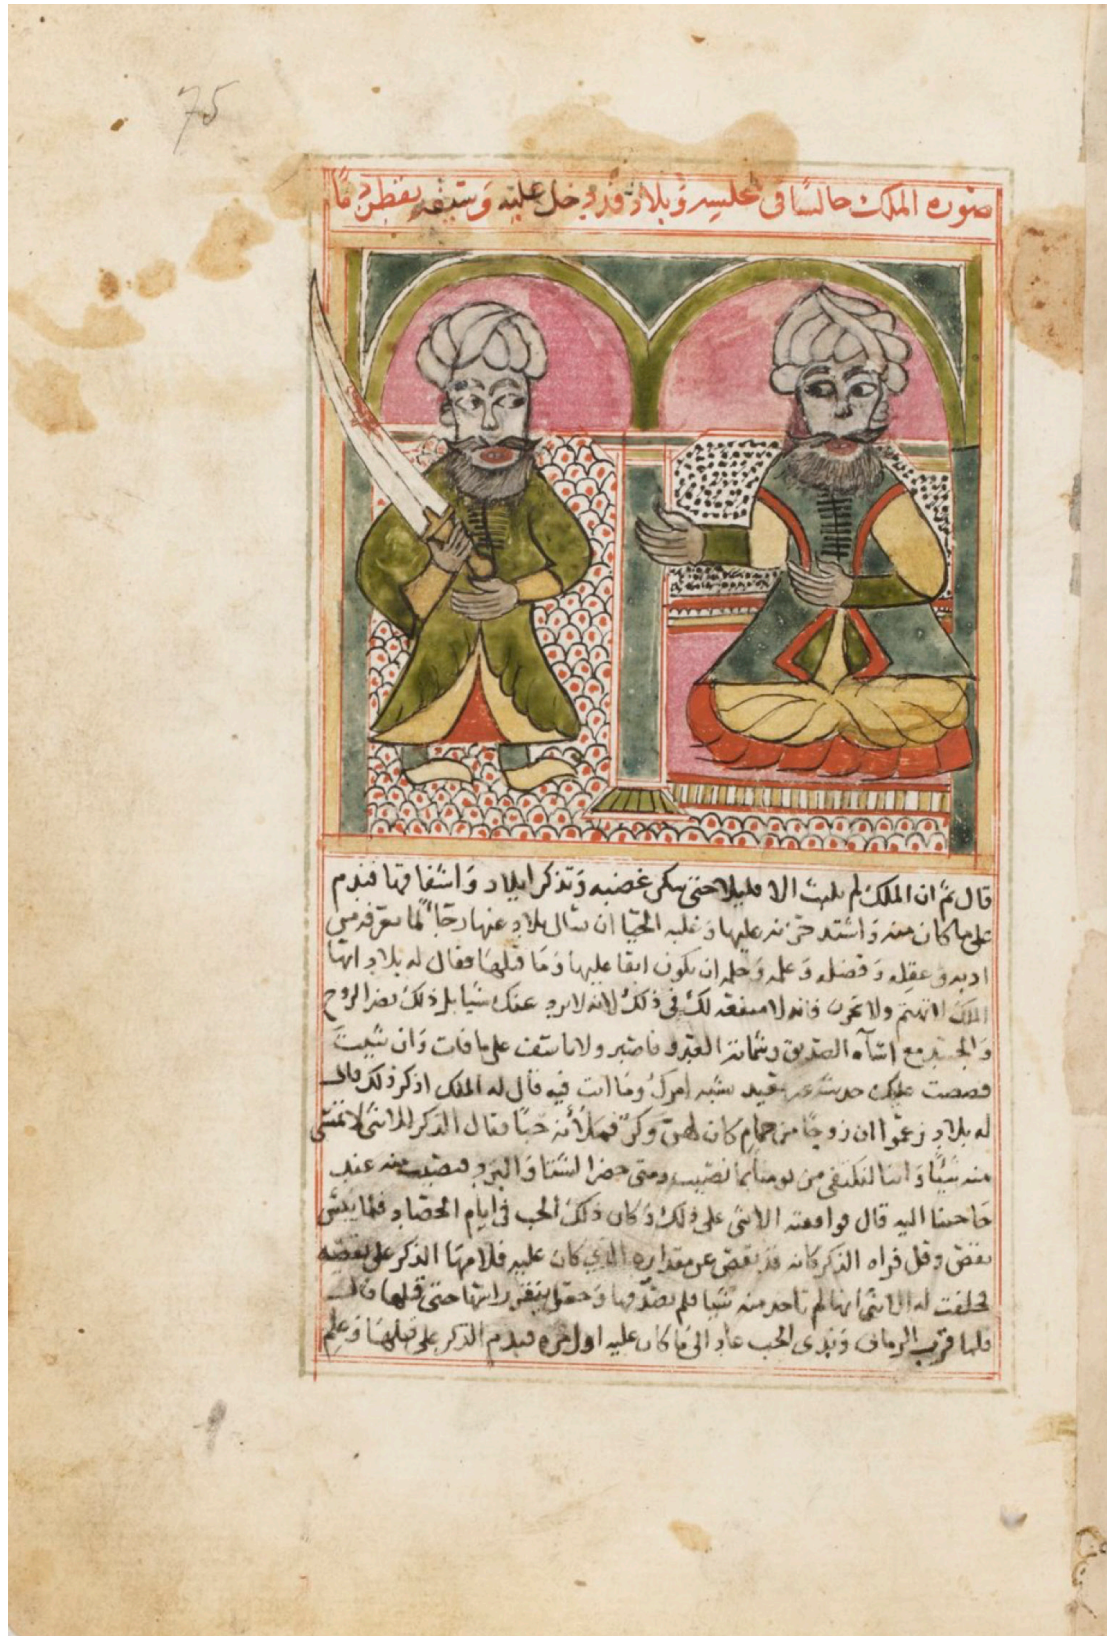 75
صوره الملك جالسًا فى مجلسه وَبلاد قد دخل عليه وَسيفه يقطر دمًا
قال ثمّ ان الملك لم يلبث الا قليلا حتى سكن غضبه وَتذكر ايلاد وَاشفاقها فندم
على ما كان منه وَاشتد حزنه عليها وَغلبه الحيا ان يسال بلاد عنها رجآ لما يعرفه من
ادبه وَعقله وَفضله وَعلمه وَحلمه ان يكون ابقا عليها وَمَا قتلهَا فقال له بلاد ايها
الملك لا تهتم ولا تحزن فانه لا منفعه لك فى ذلك لانه لا يرد عنك شيا بل ذلك يضر الروح
وَالجسد مع اساآه الصديق وشماتة العدو فاصبر ولا تاسف على ما فات وَان شيت
قصصت عليك حديثا يشبه امرك وَمَا انت فيه قال له الملك اذكر ذلك قال
له بلاد زعموا ان زوجًا من حمام كان لهن وَكرٌ فملأنه حبًا فقال الذكر للانثى لا تمسّى
منه شيئًا وَاننا لنكتفى من يومنا بما نصيب ومتى حضر الشتا وَالبرد فنصيب منه عند
حاجتنا اليه قال فوافقته الانثى على ذلك وَكان ذلك الحب فى ايام الحصاد فلما يبس
نقص وقل فراه الذكر كانه قد نقص عن مقداره الذي كان عليه فلامهَا الذكر على نقصه
فحلفت له الانثى انها لم تاخذ منه شيا فلم يصدّقها وَجعل ينقر راسها حتى قتلها قال
فلما قرب الزمان وَندى الحب عاد الى مَا كان عليه اول مره فندم الذكر على قتلهَا وَعلم